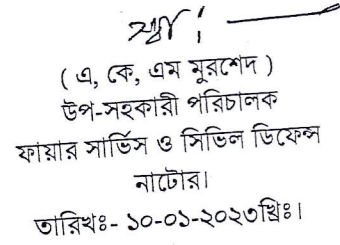 স্বা/
( এ, কে, এম মুরশেদ )
উপ-সহকারী পরিচালক
ফায়ার সার্ভিস ও সিভিল ডিফেন্স
নাটোর।
তারিখঃ- ১০-০১-২০২৩খ্রিঃ।